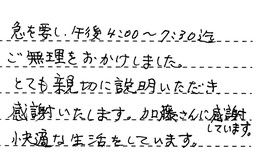 急を要し午後4:00〜7:30迄
ご無理をおかけしました。
とても親切に説明いただき
感謝いたします。加藤さんに感謝しています。
快適な生活をしています。